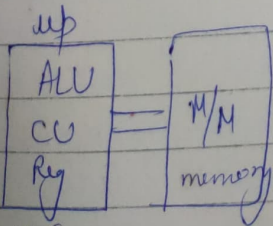 μp
ALU
CU
Reg
M/M
memory